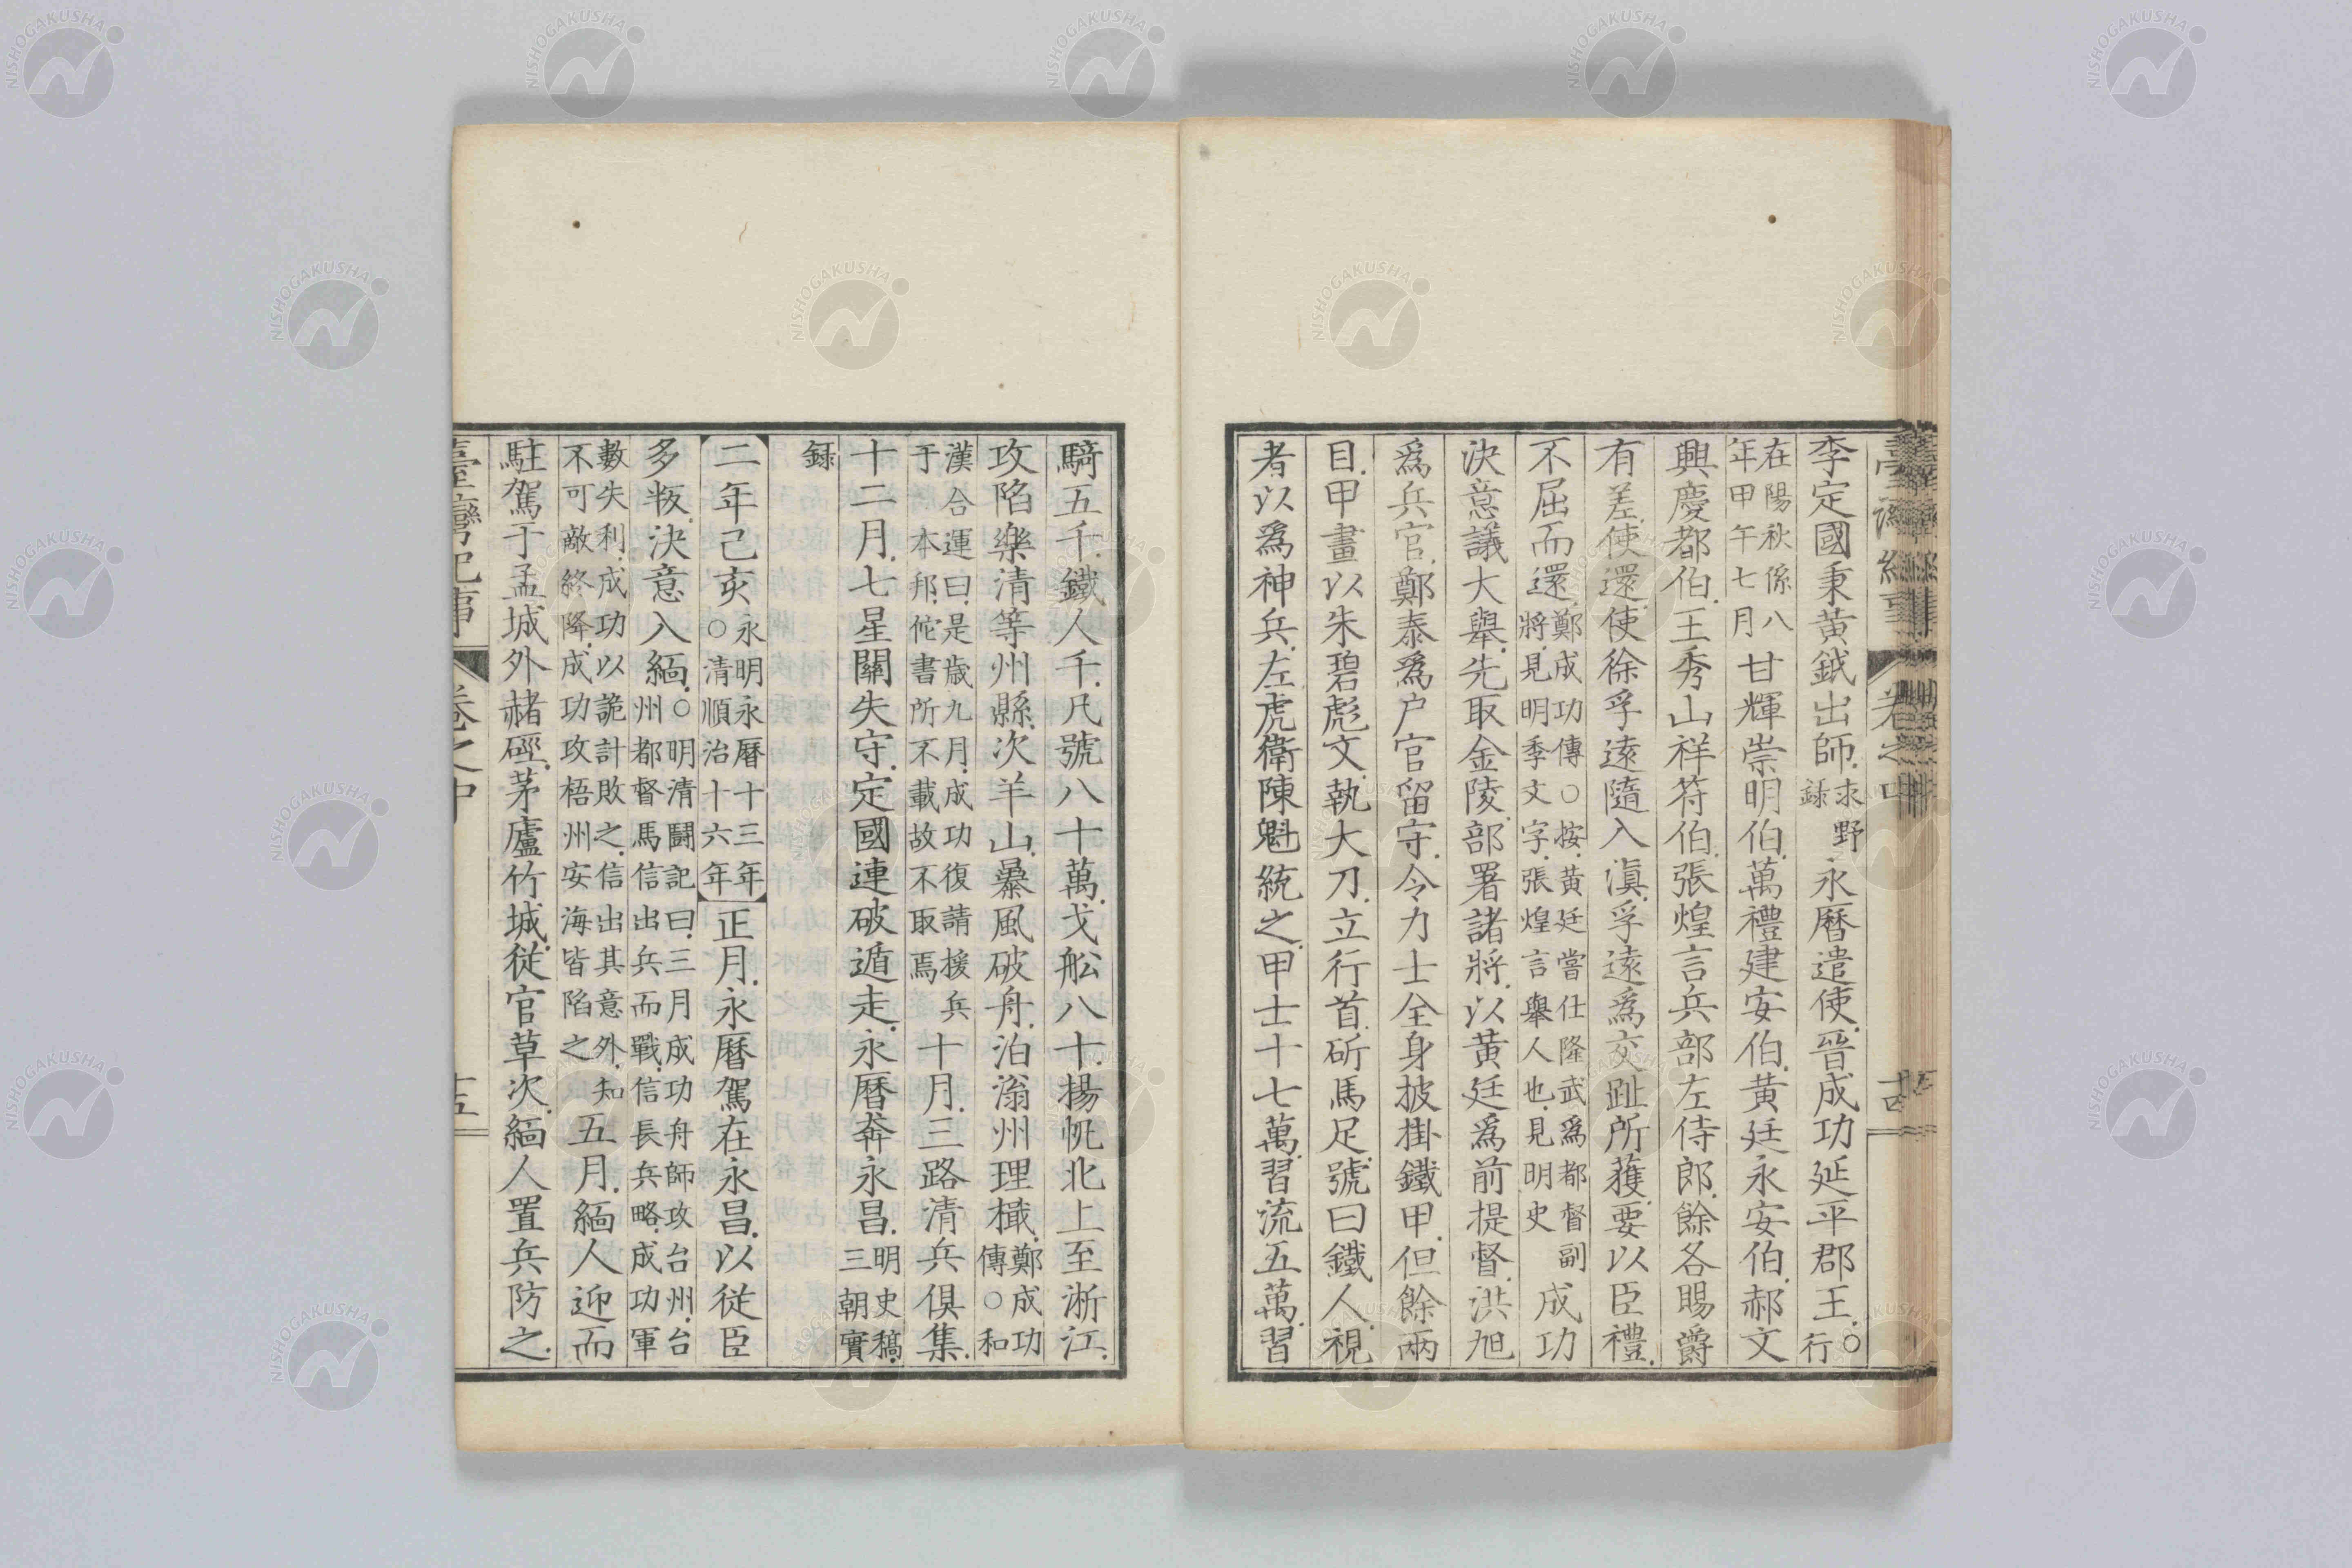 李定國秉黃鉞出師求野錄永曆遣使晉成功延平郡王○行
在陽秋係八年甲午七月甘輝崇明伯萬禮建安伯黃廷永安伯郝文
興慶都伯王秀山祥符伯張煌言兵部左侍郎餘各賜爵
有差使還使徐孚遠隨入滇孚遠爲交趾所獲要以臣禮
不屈而還鄭成功傳○按黃廷嘗仕隆武爲都督副將見明季文字張煌言舉人也見明史成功
決意議大舉先取金陵部署諸將以黃廷爲前提督洪旭
爲兵官鄭泰爲户官留守令力士全身披掛鐵甲但餘兩
目甲畫以朱碧彪文執大刀立行首斫馬足號曰鐵人視
者以爲神兵左虎衛陳魁統之甲士十七萬習流五萬習
騎五千鐵人千凡號八十萬戈舩八十揚帆北上至浙江
攻陷樂清等州縣次羊山暴風破舟泊滃州理檝鄭成功傳○和
漢合運曰是歳九月成功復請援兵于本邦佗書所不載故不取焉十月三路清兵俱集
十二月七星關失守定國連破遁走永曆奔永昌明史稿三朝實
録
二年己亥○永明永曆十三年清順治十六年正月永曆駕在永昌以從臣
多叛決意入緬○明清闘記曰三月成功舟師攻台州台州都督馬信出兵而戰信長兵略成功軍
數失利成功以詭計敗之信出其意外知不可敵終降成功攻梧州安海皆陷之五月緬人迎而
駐駕于孟城外赭硜茅廬竹城從官草次緬人置兵防之
卷之中
十五
NISHOGAKUSHA